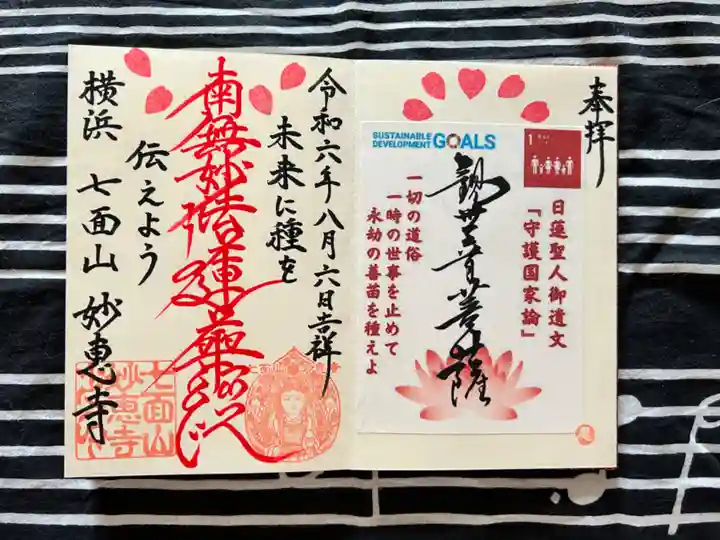 奉拝
SUSTAINABLE DEVELOPMENT GOALS
1
日蓮聖人御遺文
「守護国家論」
観世音菩薩
一切の道俗
一時の世事を止めて
永劫の善苗を種えよ
令和六年八月六日吉祥
未来に種を
南無妙法蓮華経
伝えよう
横浜 七面山 妙恵寺
七面山
妙恵寺